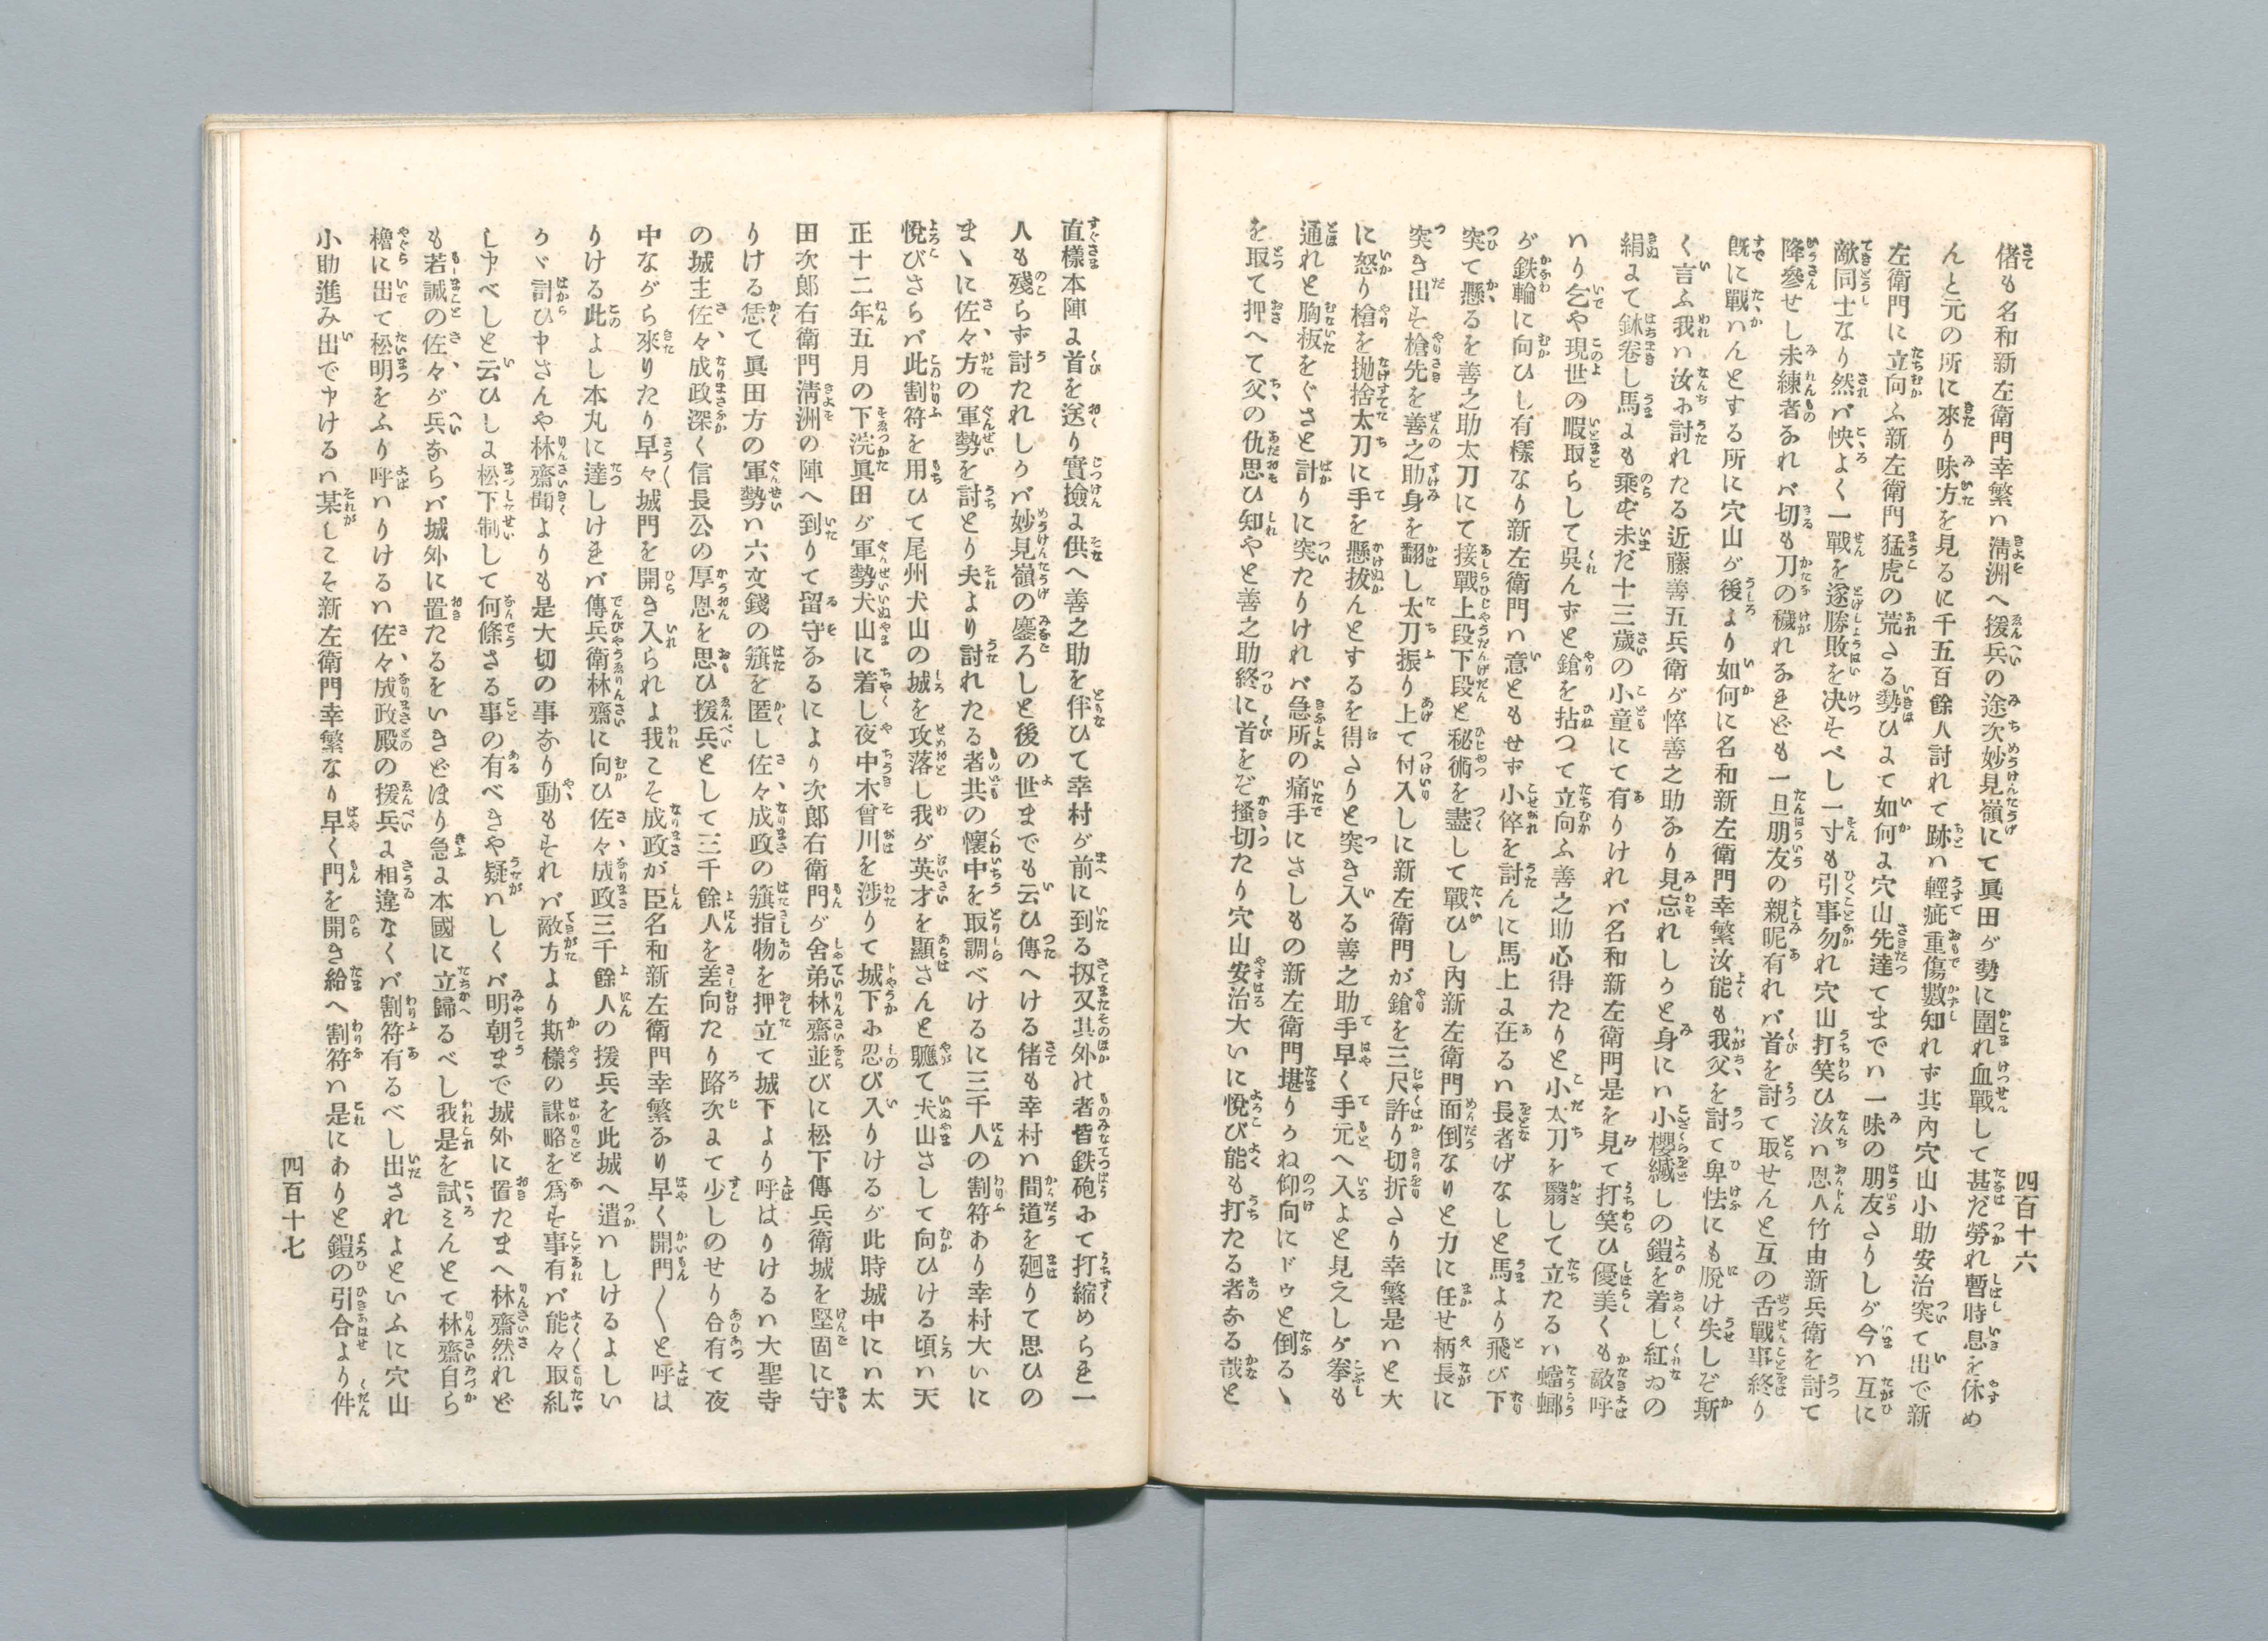 四百十六
偖も名和新左衛門幸繁ハ淸洲へ援兵の途次妙見嶺にて眞田が勢に圍れ血戰して甚だ勞れ暫時息を休め
んと元の所に來り味方を見るに千五百餘人討れて跡ハ輕疵重傷數知れず其內穴山小助安治突て出で新
左衛門に立向ふ新左衛門猛虎の荒さる勢ひまて如何ま穴山先達てまでハ一味の朋友さりしが今ハ互に
敵同士なり然バ快よく一戰を遂勝敗を决すべし一寸も引事勿れ穴山打笑ひ汝ハ恩人竹由新兵衛を討て
降參せし未練者なれバ切も刀の穢れなれども一旦朋友の親昵有れバ首を討て取せんと互の舌戰事終り
既に戰ハんとする所に穴山が後より如何に名和新左衛門幸繁汝能も我父を討て卑怯にも脫け失しぞ斯
く言ふ我ハ汝に討れたる近藤善五兵衛が悴善之助なり見忘れしかと身にハ小櫻縅しの鎧を着し紅ゐの
絹まて鉢卷し馬まも乘ず未だ十三歲の小童にて有りけれバ名和新左衛門是を見て打笑ひ優美くも敵呼
ハり乞や現世の暇取らして呉んずと鎗を拈つて立向ふ善之助心得たりと小太刀を翳して立たるハ蟷螂
が鉄輪に向ひし有樣なり新左衛門ハ意ともせず小倅を討んに馬上ま在るハ長者げなしと馬より飛び下
突て懸るを善之助太刀にて接戰上段下段と秘術を盡して戰ひし內新左衛門面倒なりと力に任せ柄長に
突き出す槍先を善之助身を翻し太刀振り上て付入しに新左衛門が鎗を三尺許り切折さり幸繁是ハと大
に怒り槍を拋捨太刀に手を懸拔んとするを得さりと突き入る善之助手早く手元へ入よと見えしが拳も
通れと胸板をぐさと計りに突たりけれバ急所の痛手にさしもの新左衛門堪りかね仰向にドゥと倒るヽ
を取て押へて父の仇思ひ知やと善之助終に首をぞ搔切たり穴山安治大いに悅び能も打たる者なる哉と
直樣本陣ま首を送り實撿ま供へ善之助を伴ひて幸村が前に到る扨又其外の者皆鉄砲にて打縮められ一
人も殘らず討たれしかバ妙見嶺の鏖ろしと後の世までも云ひ傳へける偖も幸村ハ間道を廻りて思ひの
まヽに佐々方の軍勢を討とり夫より討れたる者共の懷中を取調べけるに三千人の割符あり幸村大いに
悅びさらバ此割符を用ひて尾州犬山の城を攻落し我が英才を顯さんと軈て犬山さして向ひける頃ハ天
正十二年五月の下浣眞田が軍勢犬山に着し夜中木曾川を涉りて城下に忍び入りけるが此時城中にハ太
田次郞右衛門淸洲の陣へ到りて留守なるにより次郞右衛門が舍弟林齋並びに松下傳兵衛城を堅固に守
りける恁て眞田方の軍勢ハ六文錢の籏を匿し佐々成政の籏指物を押立て城下より呼はりけるハ大聖寺
の城主佐々成政深く信長公の厚恩を思ひ援兵として三千餘人を差向たり路次まて少しのせり合有て夜
中ながら來りたり早々城門を開き入られよ我こそ成政が臣名和新左衛門幸繁なり早く開門〱と呼は
りける此よし本丸に達しけれバ傳兵衛林齋に向ひ佐々成政三千餘人の援兵を此城へ遣ハしけるよしい
かヾ討ひ申さんや林齋聞よりも是大切の事なり動もすれバ敵方より斯樣の謀略を爲す事有バ能々取糺
し申べしと云ひしま松下制して何條さる事の有べきや疑ハしくバ明朝まで城外に置たまへ林齋然れど
も若誠の佐々が兵ならバ城外に置たるをいきどほり急ま本國に立歸るべし我是を試ミんとて林齋自ら
櫓に出て松明をふり呼ハりけるハ佐々成政殿の援兵ま相違なくバ割符有るべし出されよといふに穴山
小助進み出で申けるハ某しこそ新左衛門幸繁なり早く門を開き給へ割符ハ是にありと鎧の引合より件
四百十七